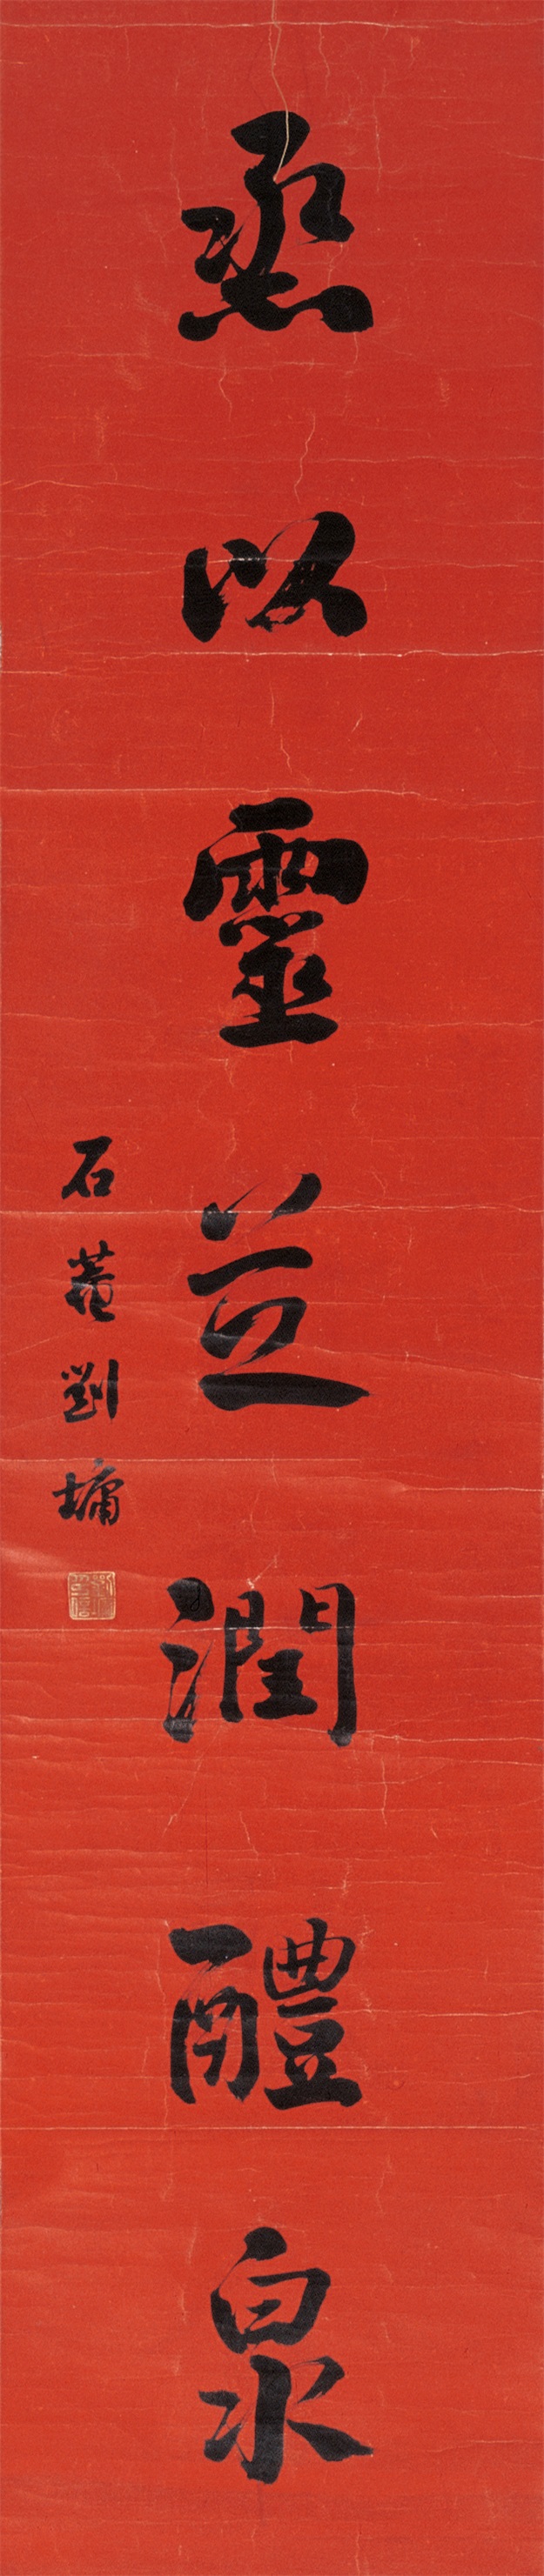 烝以靈芝潤醴泉
石菴劉墉